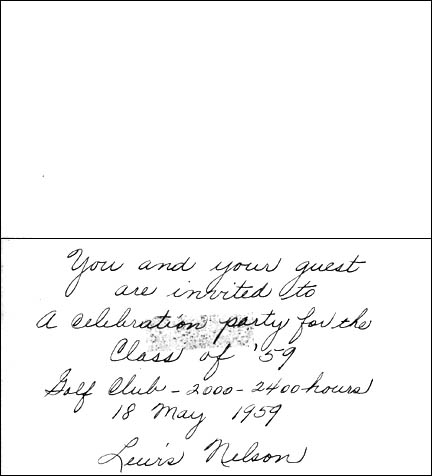 You and your guest
are invited to
A celebration party for the
Class of '59
Golf Club - 2000 - 2400 hours
18 May 1959
Lewis Nelson